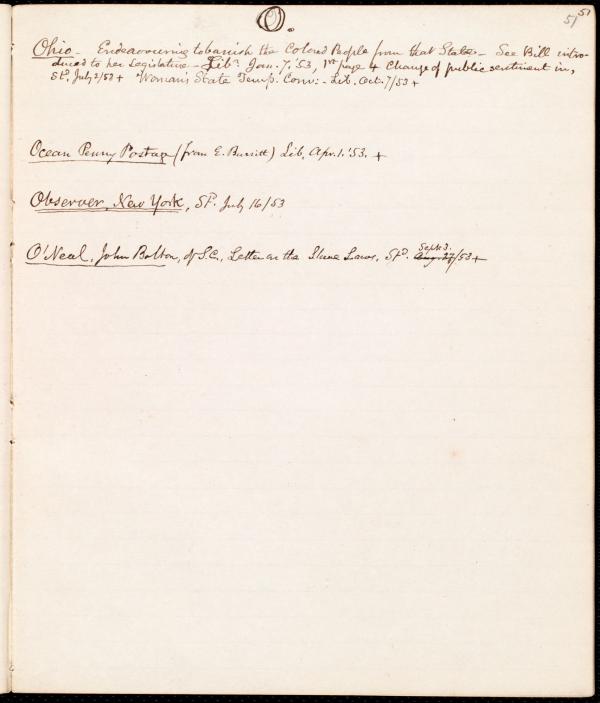 O.
51 51
Ohio - Endeavouring to banish the Colored People from that State - See Bill intro-
duced to her Legislature - Lib.r Jan. 7. '53, 1st page + Change of public sentiment in,
St.d, July 2/53 + Woman's State Temp. Conv: - Lib. Oct. 7/53 +
Ocean Penny Postage (from E. Burritt) Lib. Apr. 1. '53. +
Observer, New York, St. July 16/53
Sept. 3.
O'Neal, John Bolton, of S.C., Letter on the Slave Laws, St.d. Aug. 27/53 +